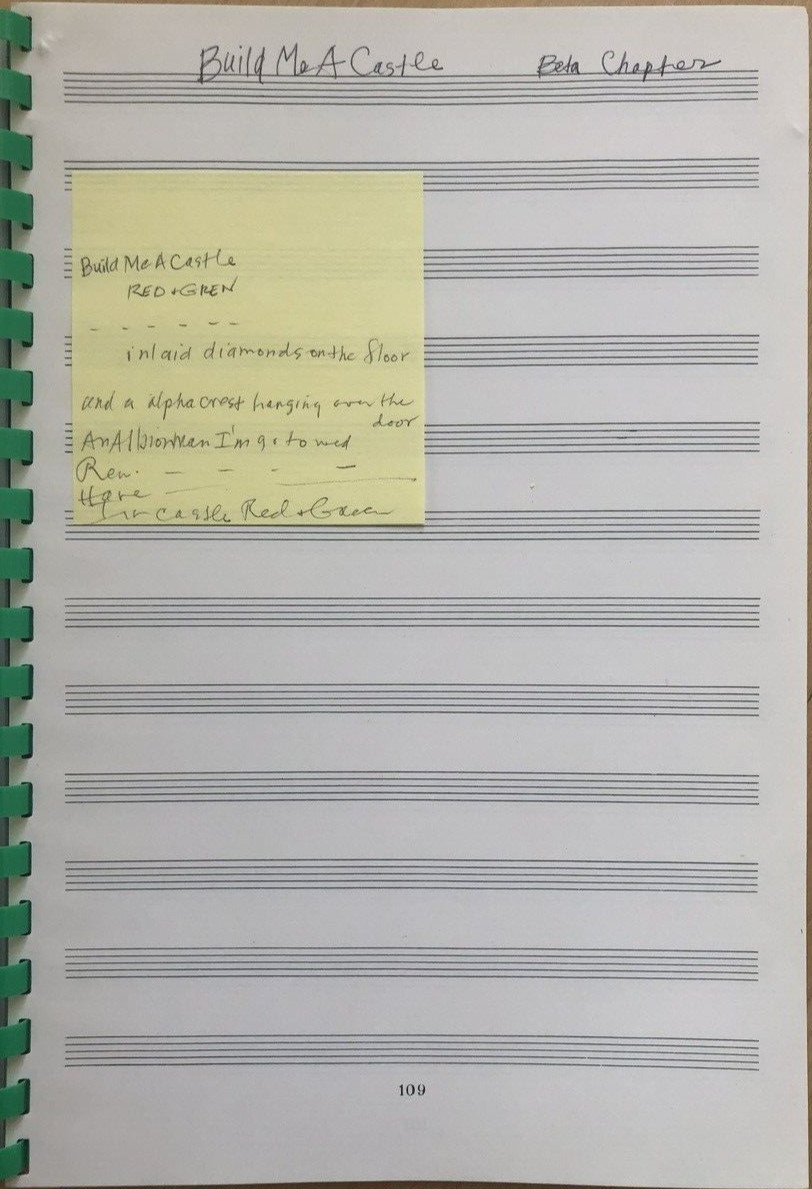 Build Me A Castle Beta Chapter
Build Me A Castle
RED + GREN
- - - - - -
inlaid diamonds on the floor
and a alpha crest hanging over the
door
I'm g to wed
Ren. - - - -
Have
castle Red + Green
109